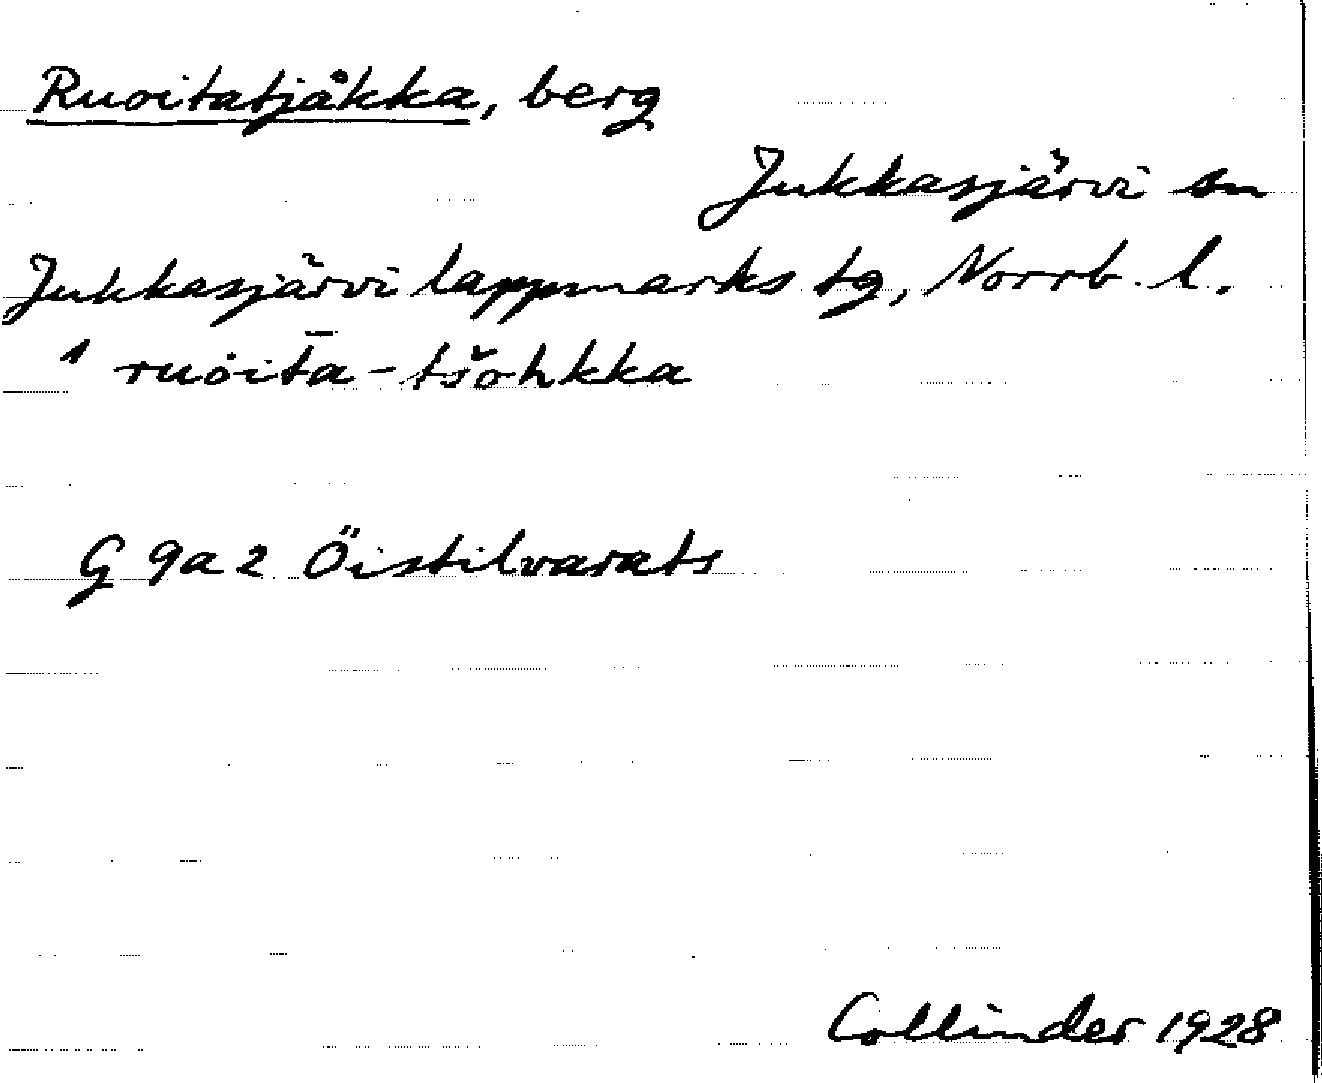 Ruoitatjåkka, berg
Jukkasjärvi sn
Jukkasjärvi lappmarks tg, Norrb. l.
ˈruȯītā-tšohkka
G 9a2 Öistilvarats
Collinder 1928